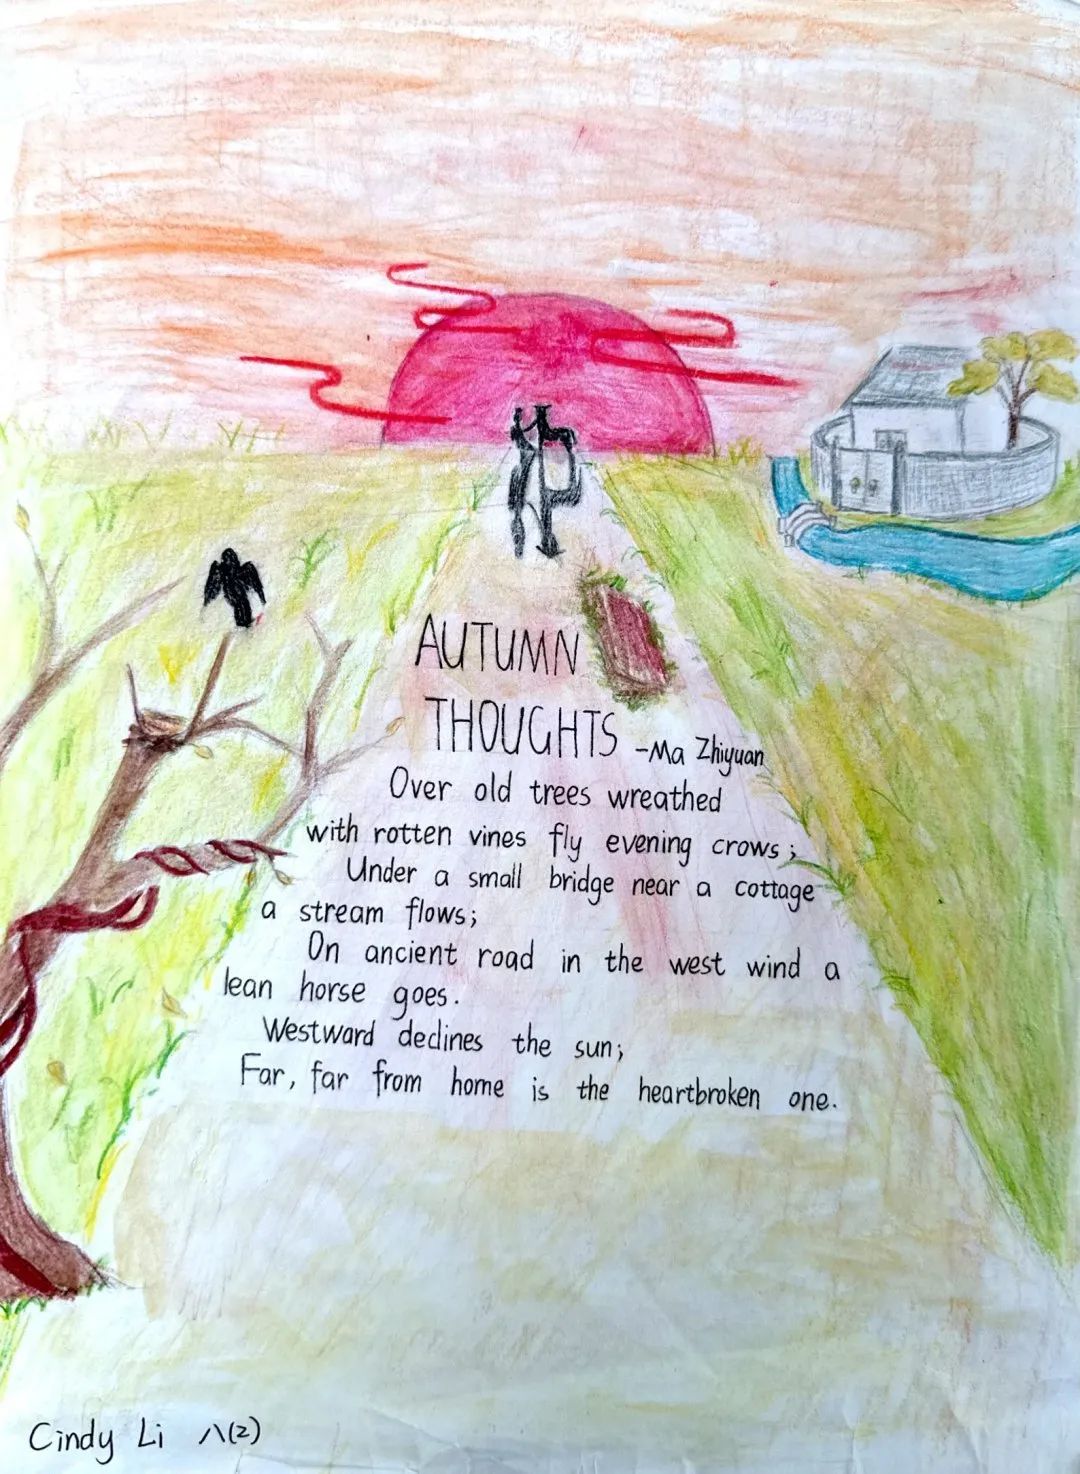 AUTUMN
THOUGHTS -Ma Zhiyuan
Over old trees wreathed
with rotten vines fly evening crows;
Under a small bridge near a cottage
a stream flows;
On ancient road in the west wind a
lean horse goes.
Westward declines the sun;
Far, far from home is the heartbroken one.
Cindy Li 八(2)